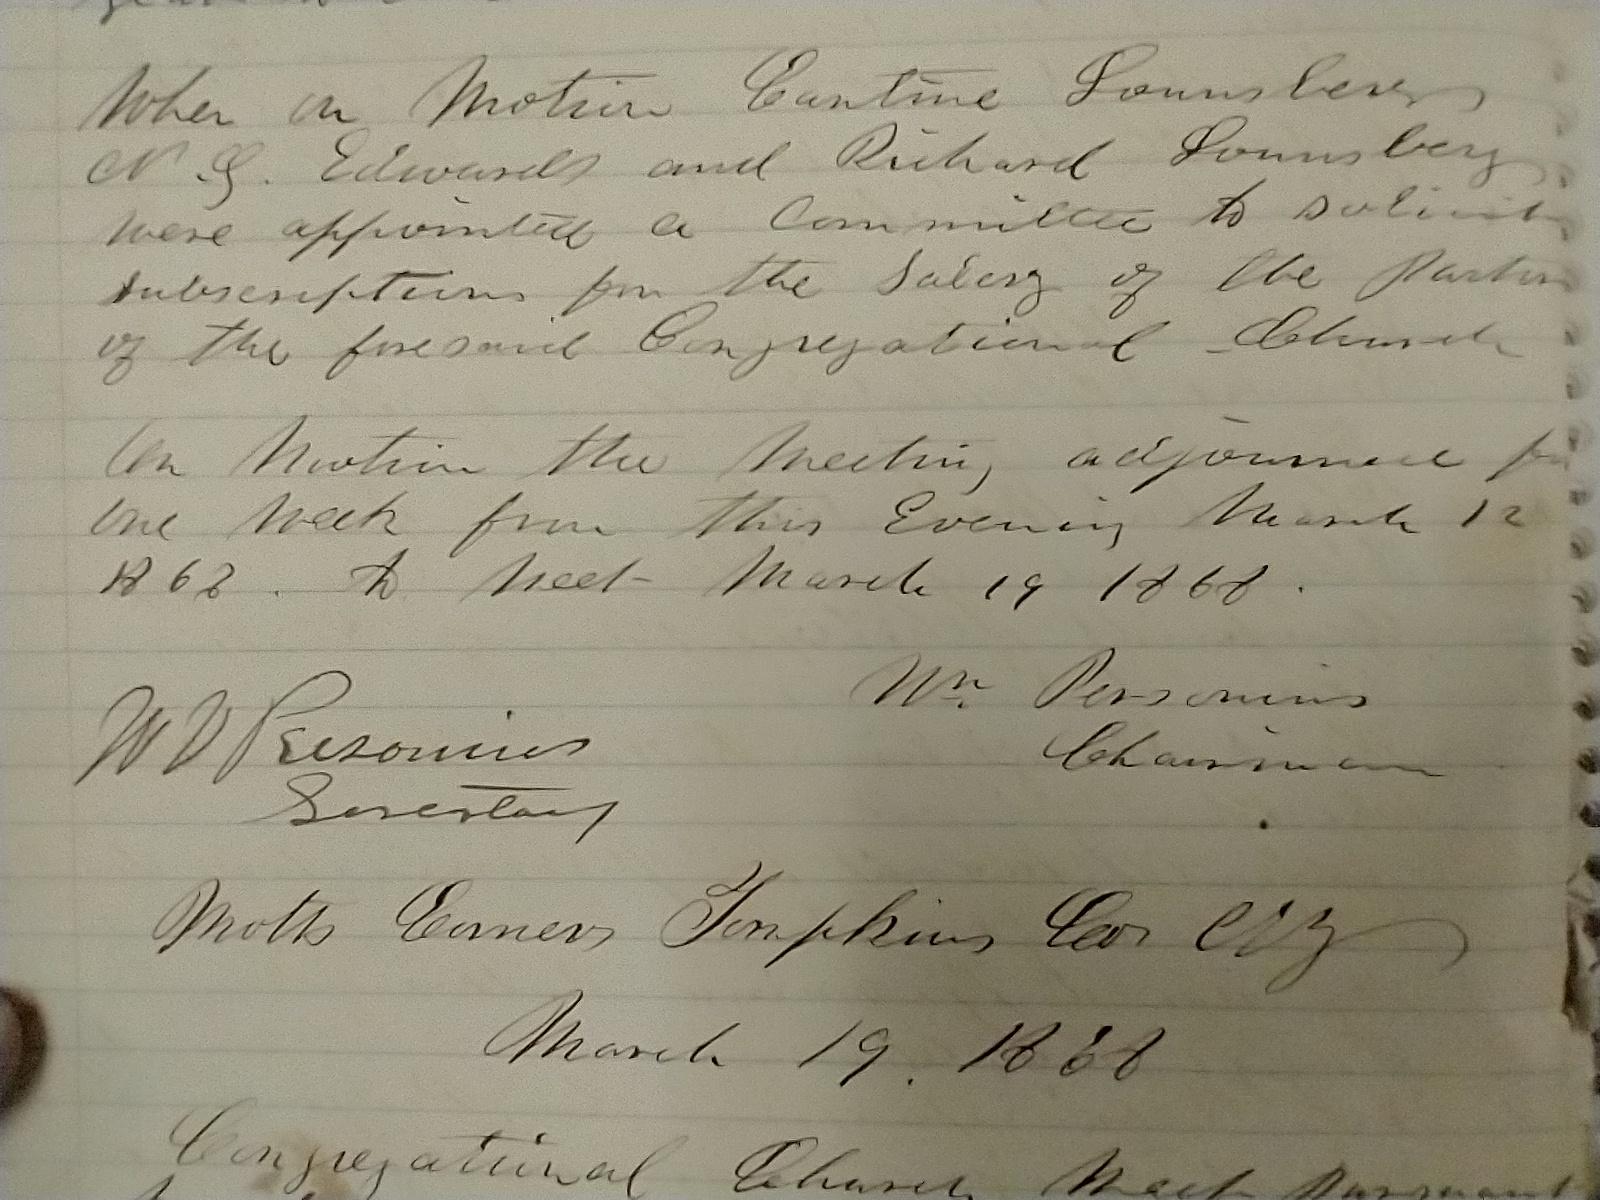 When on Motion Cantine Lounsbery
N. G. Edwards and Richard Lounsbery
were appointed a Committee to solicit
subscriptions for the Salery of the Pastor
of the foresaid Congregational Church
On Motion the Meeting adjourned for
one Week from this Evening March 12
1868. to Meet March 19 1868.
Wm. Personius
Chairman
W D Personius
Secretary
Motts Corners Tompkins Co. NY
March 19. 1868
Congregational Church Meet Pursuant